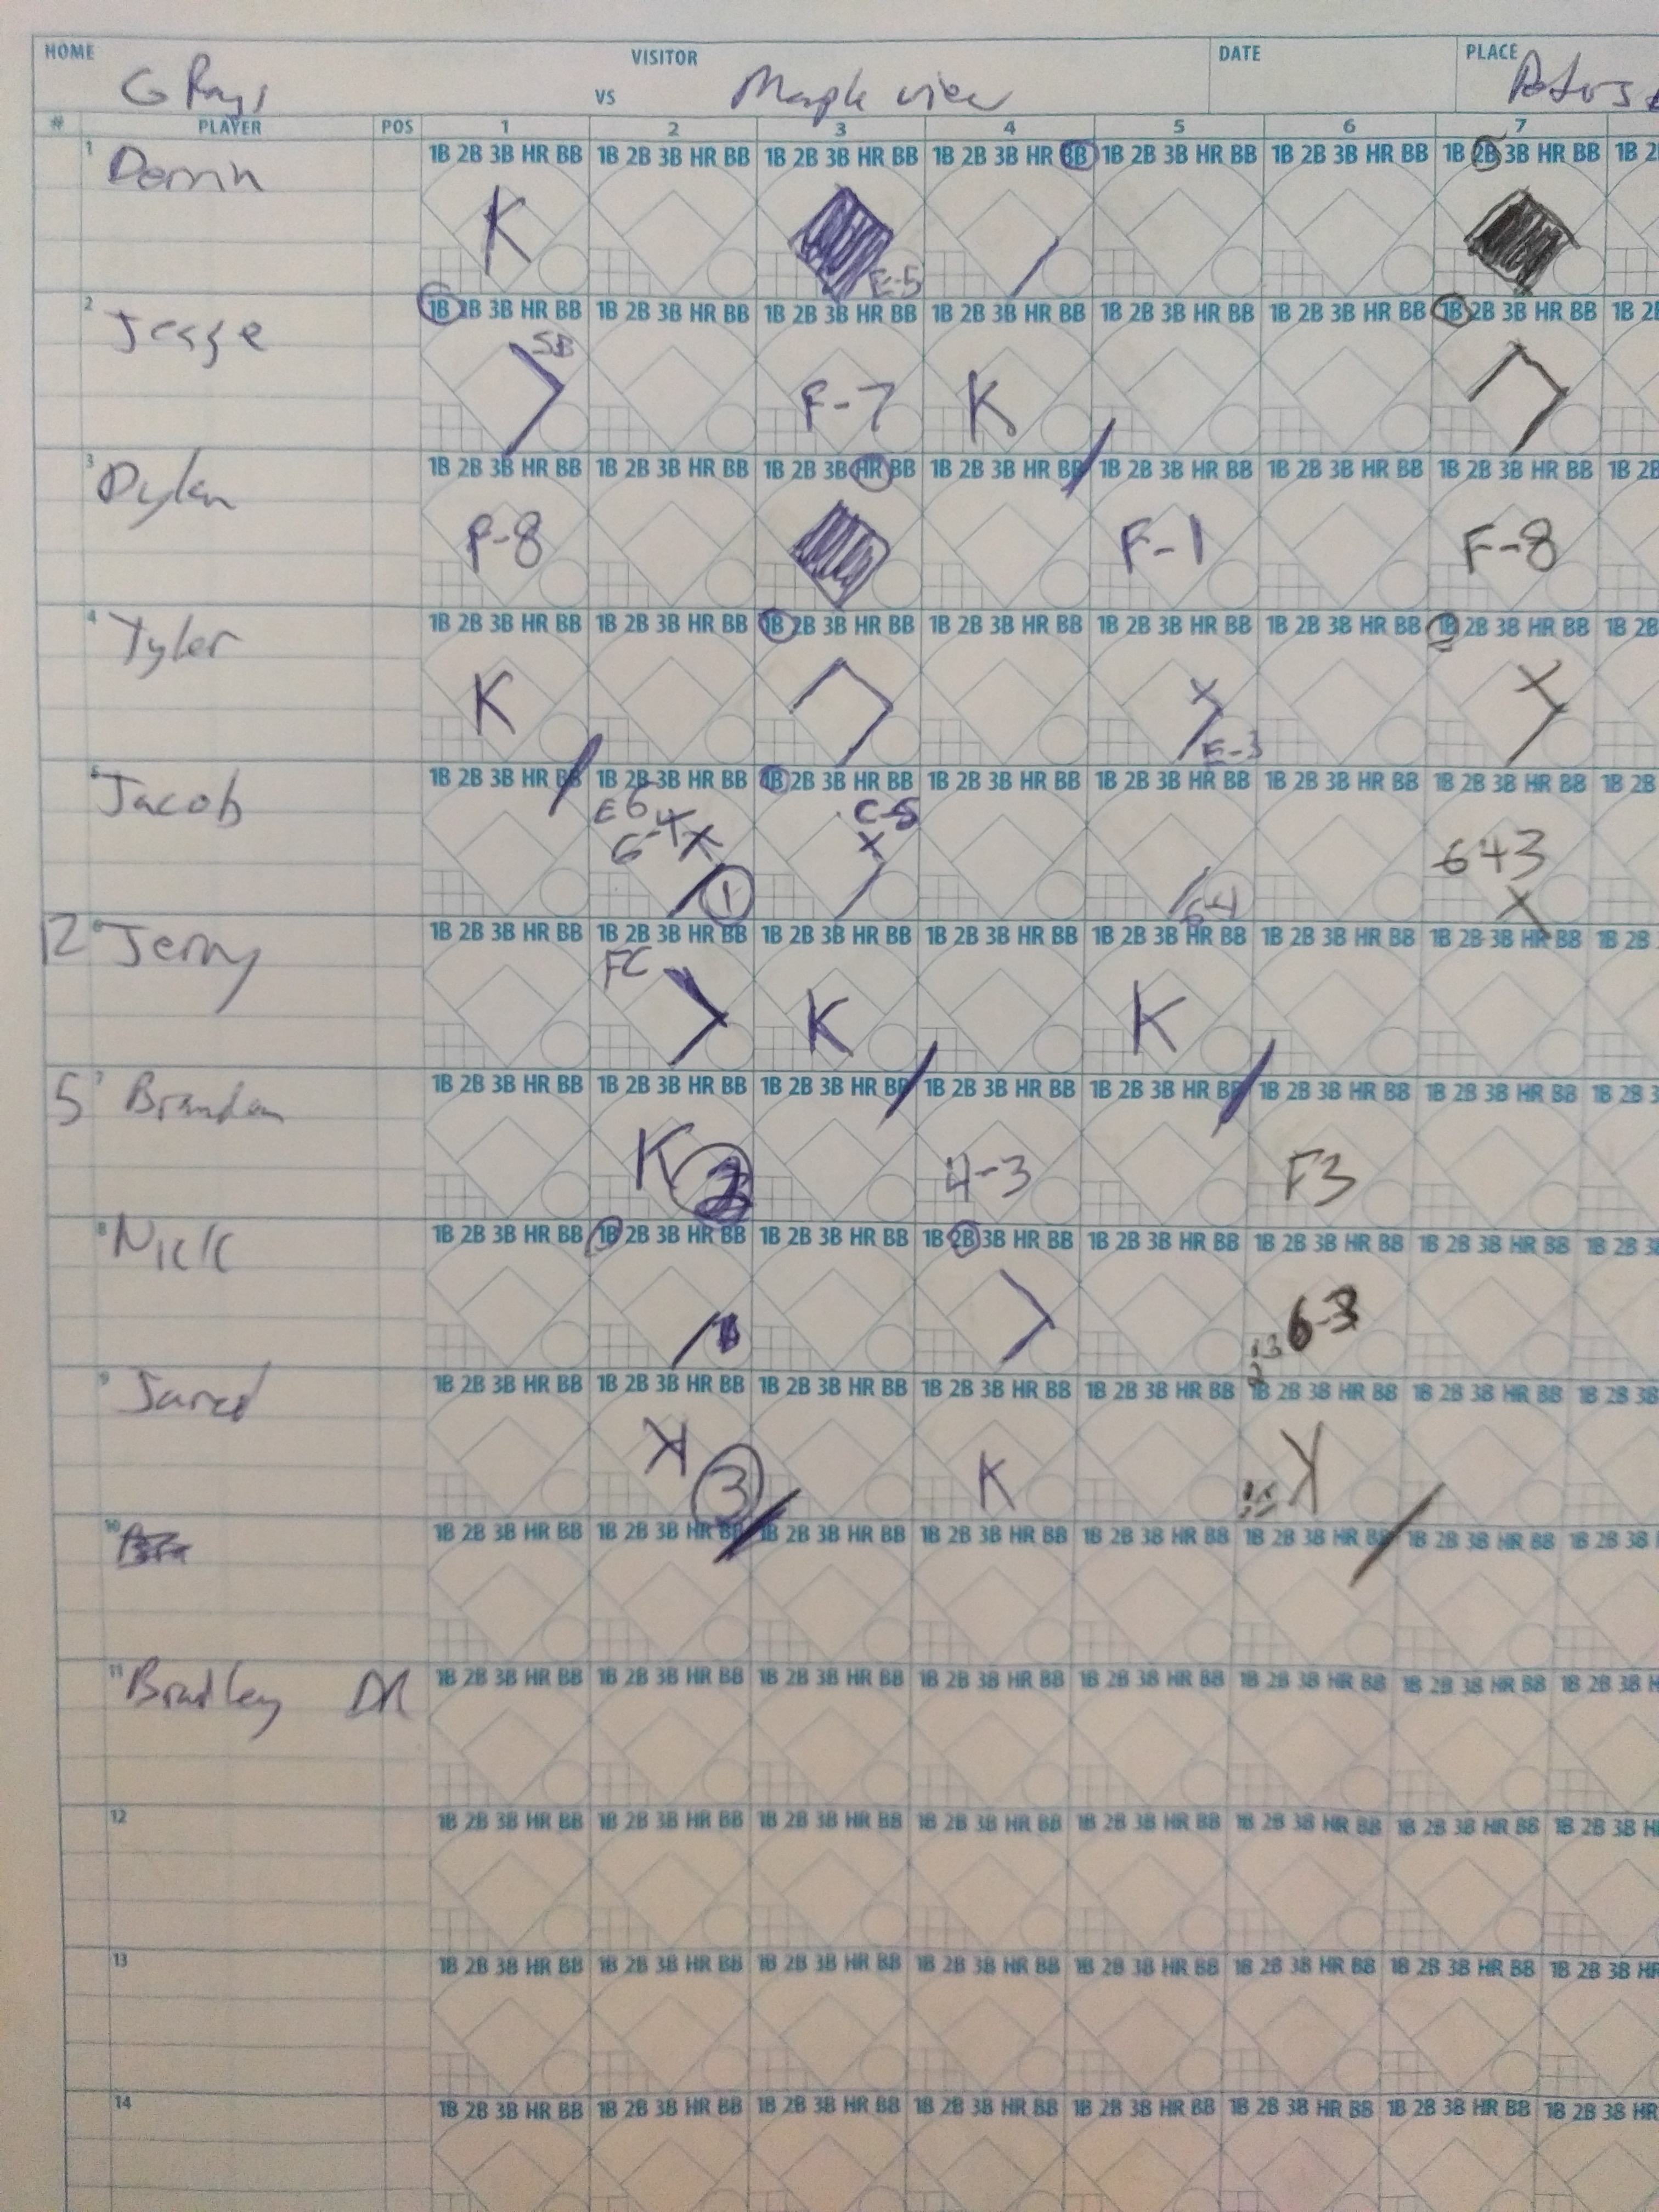 HOME VISITOR DATE PLACE
G Rays VS Maple view
# PLAYER POS 1 2 3 4 5 6 7
1B 2B 3B HR BB 1B 2B 3B HR BB 1B 2B 3B HR BB 1B 2B 3B HR BB 1B 2B 3B HR BB 1B 2B 3B HR BB 1B 2B 3B HR BB 1B 2
1
K E-5
1B 2B 3B HR BB 1B 2B 3B HR BB 1B 2B 3B HR BB 1B 2B 3B HR BB 1B 2B 3B HR BB 1B 2B 3B HR BB 1B 2B 3B HR BB 1B 2
2 Jesse
SB F-7 K
1B 2B 3B HR BB 1B 2B 3B HR BB 1B 2B 3B HR BB 1B 2B 3B HR BB 1B 2B 3B HR BB 1B 2B 3B HR BB 1B 2B 3B HR BB 1B 2B
3 Dylan
F-8 F-1 F-8
1B 2B 3B HR BB 1B 2B 3B HR BB 1B 2B 3B HR BB 1B 2B 3B HR BB 1B 2B 3B HR BB 1B 2B 3B HR BB 1B 2B 3B HR BB 1B 2B
4 Tyler
K X E-3 X
1B 2B 3B HR BB 1B 2B 3B HR BB 1B 2B 3B HR BB 1B 2B 3B HR BB 1B 2B 3B HR BB 1B 2B 3B HR BB 1B 2B 3B HR BB 1B 2B
5 Jacob
E6 6-4 X 1 C-5 X 6-4 643 X
1B 2B 3B HR BB 1B 2B 3B HR BB 1B 2B 3B HR BB 1B 2B 3B HR BB 1B 2B 3B HR BB 1B 2B 3B HR BB 1B 2B 3B HR BB 1B 2B
12 6 Jerry
FC K K
1B 2B 3B HR BB 1B 2B 3B HR BB 1B 2B 3B HR BB 1B 2B 3B HR BB 1B 2B 3B HR BB 1B 2B 3B HR BB 1B 2B 3B HR BB 1B 2B 3
5 7 Brandon
K 4-3 F3
1B 2B 3B HR BB 1B 2B 3B HR BB 1B 2B 3B HR BB 1B 2B 3B HR BB 1B 2B 3B HR BB 1B 2B 3B HR BB 1B 2B 3B HR BB 1B 2B 3
8 Nick
6-3
1B 2B 3B HR BB 1B 2B 3B HR BB 1B 2B 3B HR BB 1B 2B 3B HR BB 1B 2B 3B HR BB 1B 2B 3B HR BB 1B 2B 3B HR BB 1B 2B 3B
9 Jared
K 3 K K
1B 2B 3B HR BB 1B 2B 3B HR BB 1B 2B 3B HR BB 1B 2B 3B HR BB 1B 2B 3B HR BB 1B 2B 3B HR BB 1B 2B 3B HR BB 1B 2B 3B
10
1B 2B 3B HR BB 1B 2B 3B HR BB 1B 2B 3B HR BB 1B 2B 3B HR BB 1B 2B 3B HR BB 1B 2B 3B HR BB 1B 2B 3B HR BB 1B 2B 3B H
11 Bradley
1B 2B 3B HR BB 1B 2B 3B HR BB 1B 2B 3B HR BB 1B 2B 3B HR BB 1B 2B 3B HR BB 1B 2B 3B HR BB 1B 2B 3B HR BB 1B 2B 3B H
12
1B 2B 3B HR BB 1B 2B 3B HR BB 1B 2B 3B HR BB 1B 2B 3B HR BB 1B 2B 3B HR BB 1B 2B 3B HR BB 1B 2B 3B HR BB 1B 2B 3B HR
13
1B 2B 3B HR BB 1B 2B 3B HR BB 1B 2B 3B HR BB 1B 2B 3B HR BB 1B 2B 3B HR BB 1B 2B 3B HR BB 1B 2B 3B HR BB 1B 2B 3B HR
14